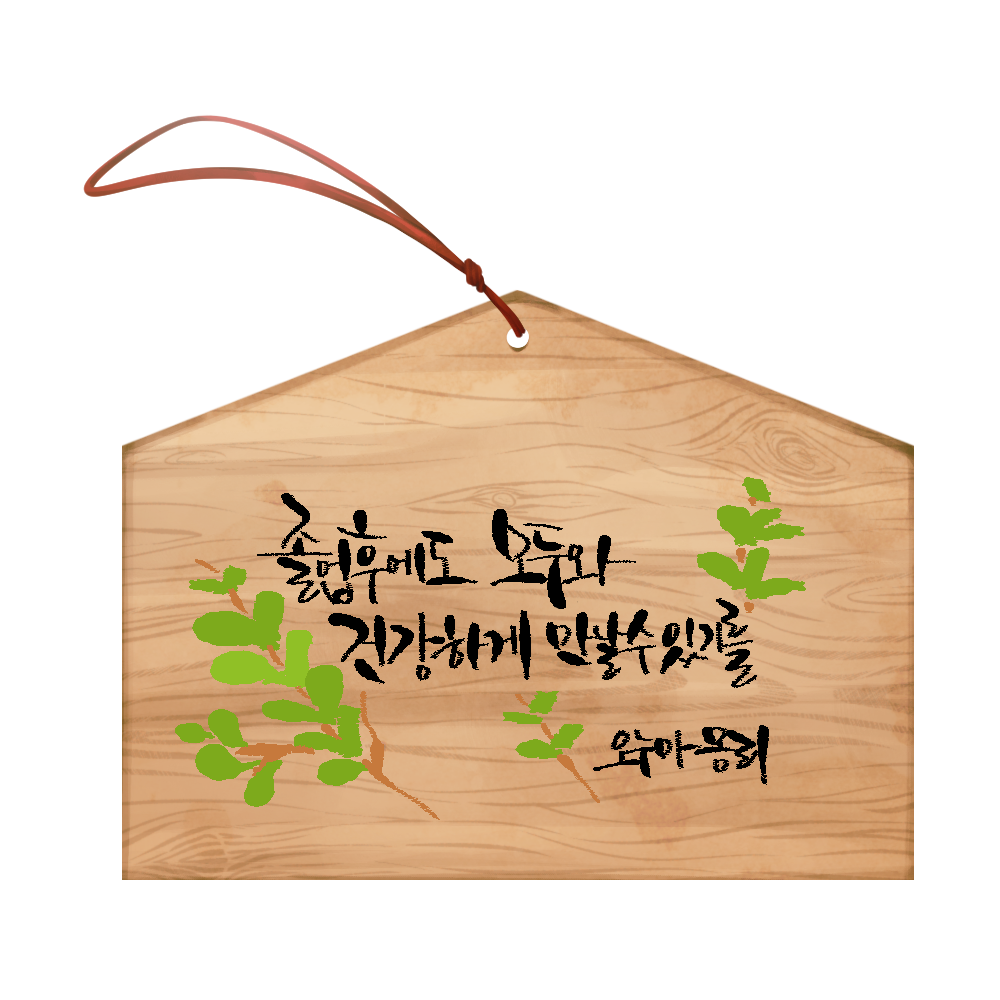 졸업후에도 모두와
건강하게 만날수있기를